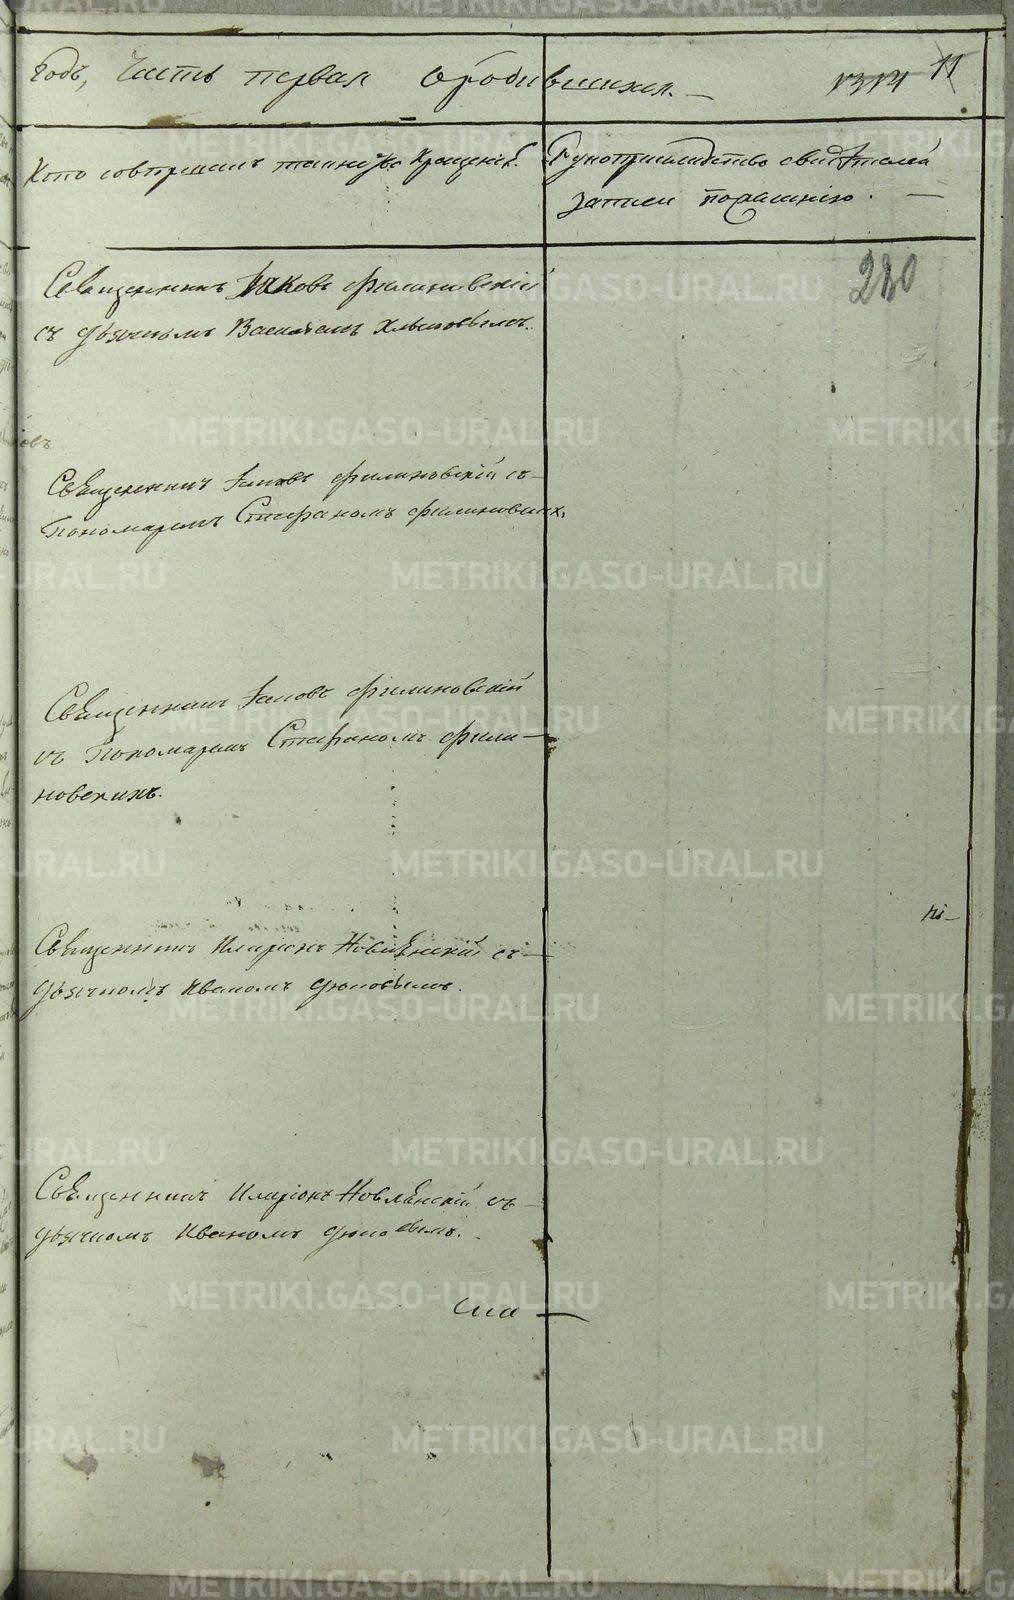 Годъ, Часть первая о родившихся.
1314 11
Кто совершалъ таинство Крещенія.
Рукоприкладство свидѣтелей
записи по желанію.
280
Священникъ Іаковъ Филиновскій
съ дьячкомъ Василіемъ
Священникъ Іаковъ Филиновскій съ
Пономаремъ Стефаномъ Филиновскихъ
Священникъ Іаковъ Филиновскій
съ Пономаремъ Стефаномъ Фили-
новскихъ.
Священникъ Иларіонъ съ
дьячкомъ Иваномъ
Священникъ Иларіонъ съ
дьячкомъ Иваномъ
METRIKI.GASO-URAL.RU